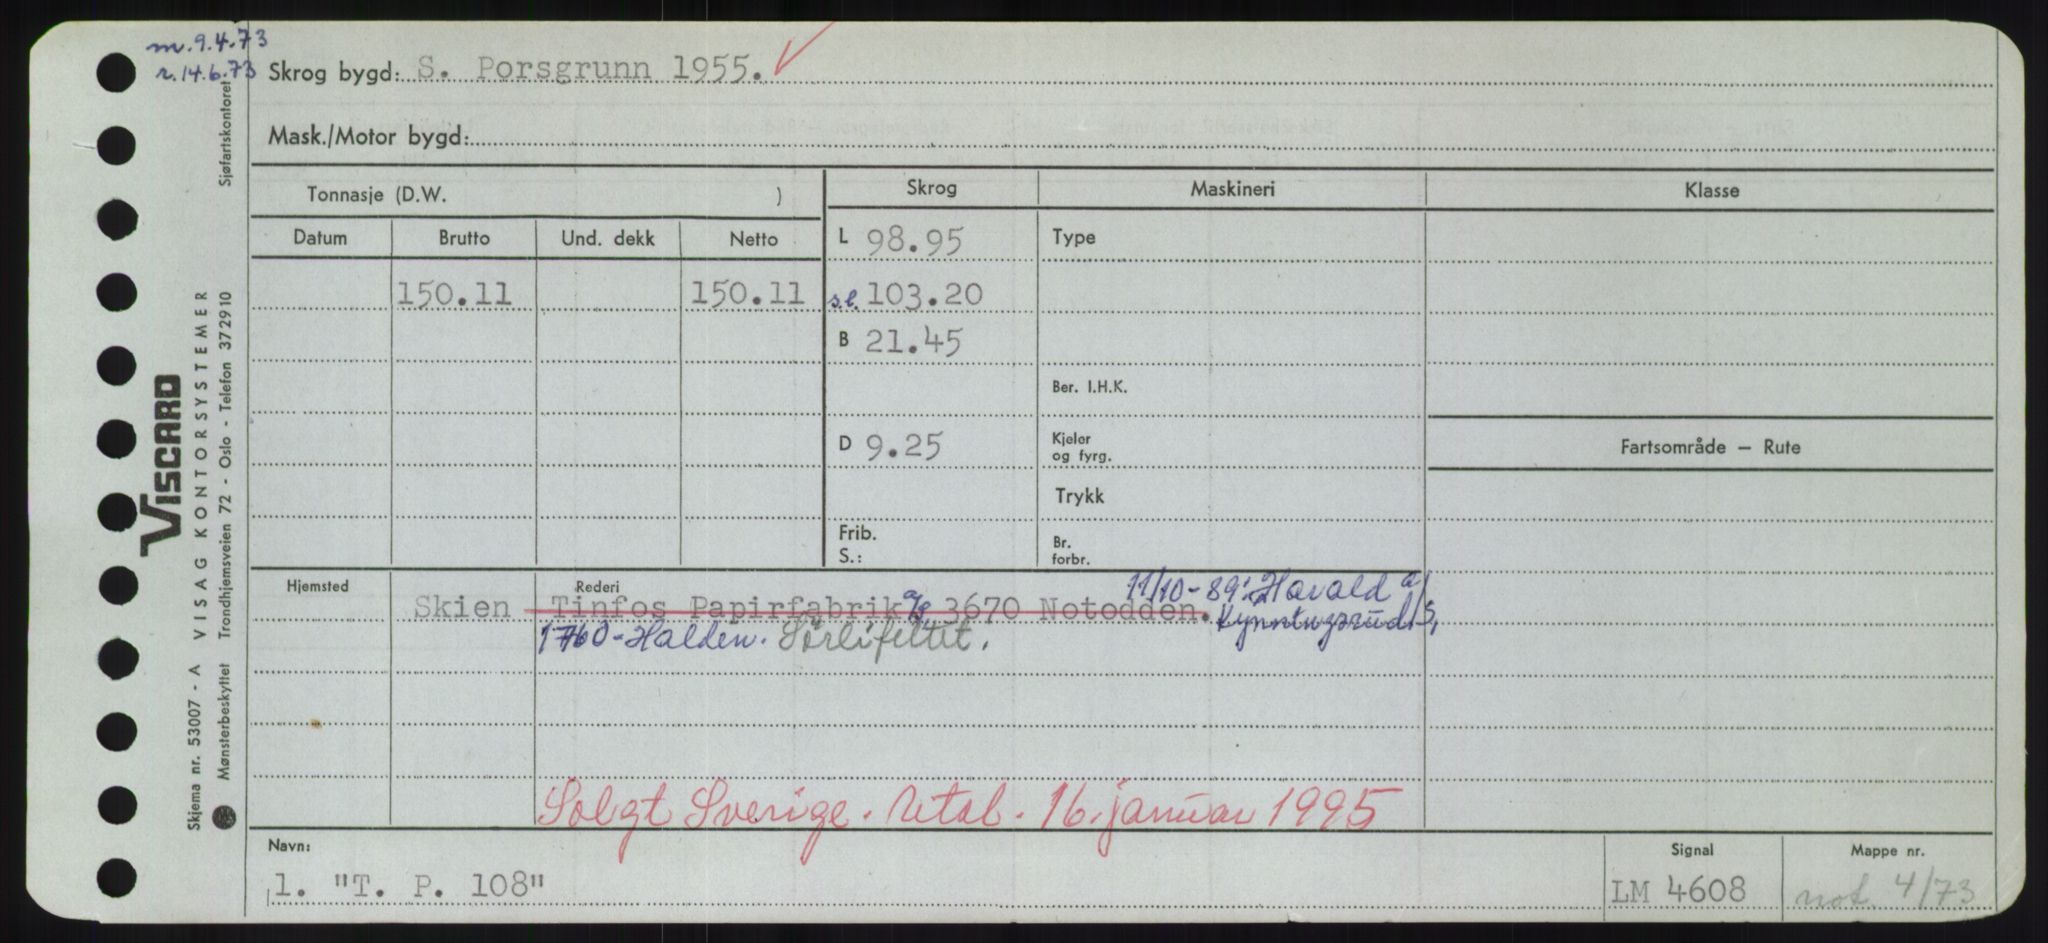 m. 9.4.73
r. 14.6.73
Skrog bygd: S. Porsgrunn 1955.
Mask./Motor bygd:
Tonnasje (D.W. )
Skrog
Maskineri
Klasse
Datum
Brutto
Und. dekk
Netto
L 98.95
Type
150.11
150.11
s.l. 103.20
B 21.45
Ber. I.H.K.
D 9.25
Kjeler
og fyrg.
Fartsområde — Rute
Trykk
Frib.
S.:
Br.
forbr.
Hjemsted
Rederi
11/10-89: Havald
Skien
Tinfos Papirfabrik a/s 3670 Notodden.
1760-Halden.
Solgt Sverige. 16. januar 1995
Navn:
1. "T. P. 108"
Signal
LM 4608
Mappe nr.
not 4/73
Sjøfartskontoret
VISCARD
VISAG KONTORSYSTEMER
Trondhjemsveien 72 - Oslo - Telefon 372910
Skjema nr. 53007 - A
Mønsterbeskyttet